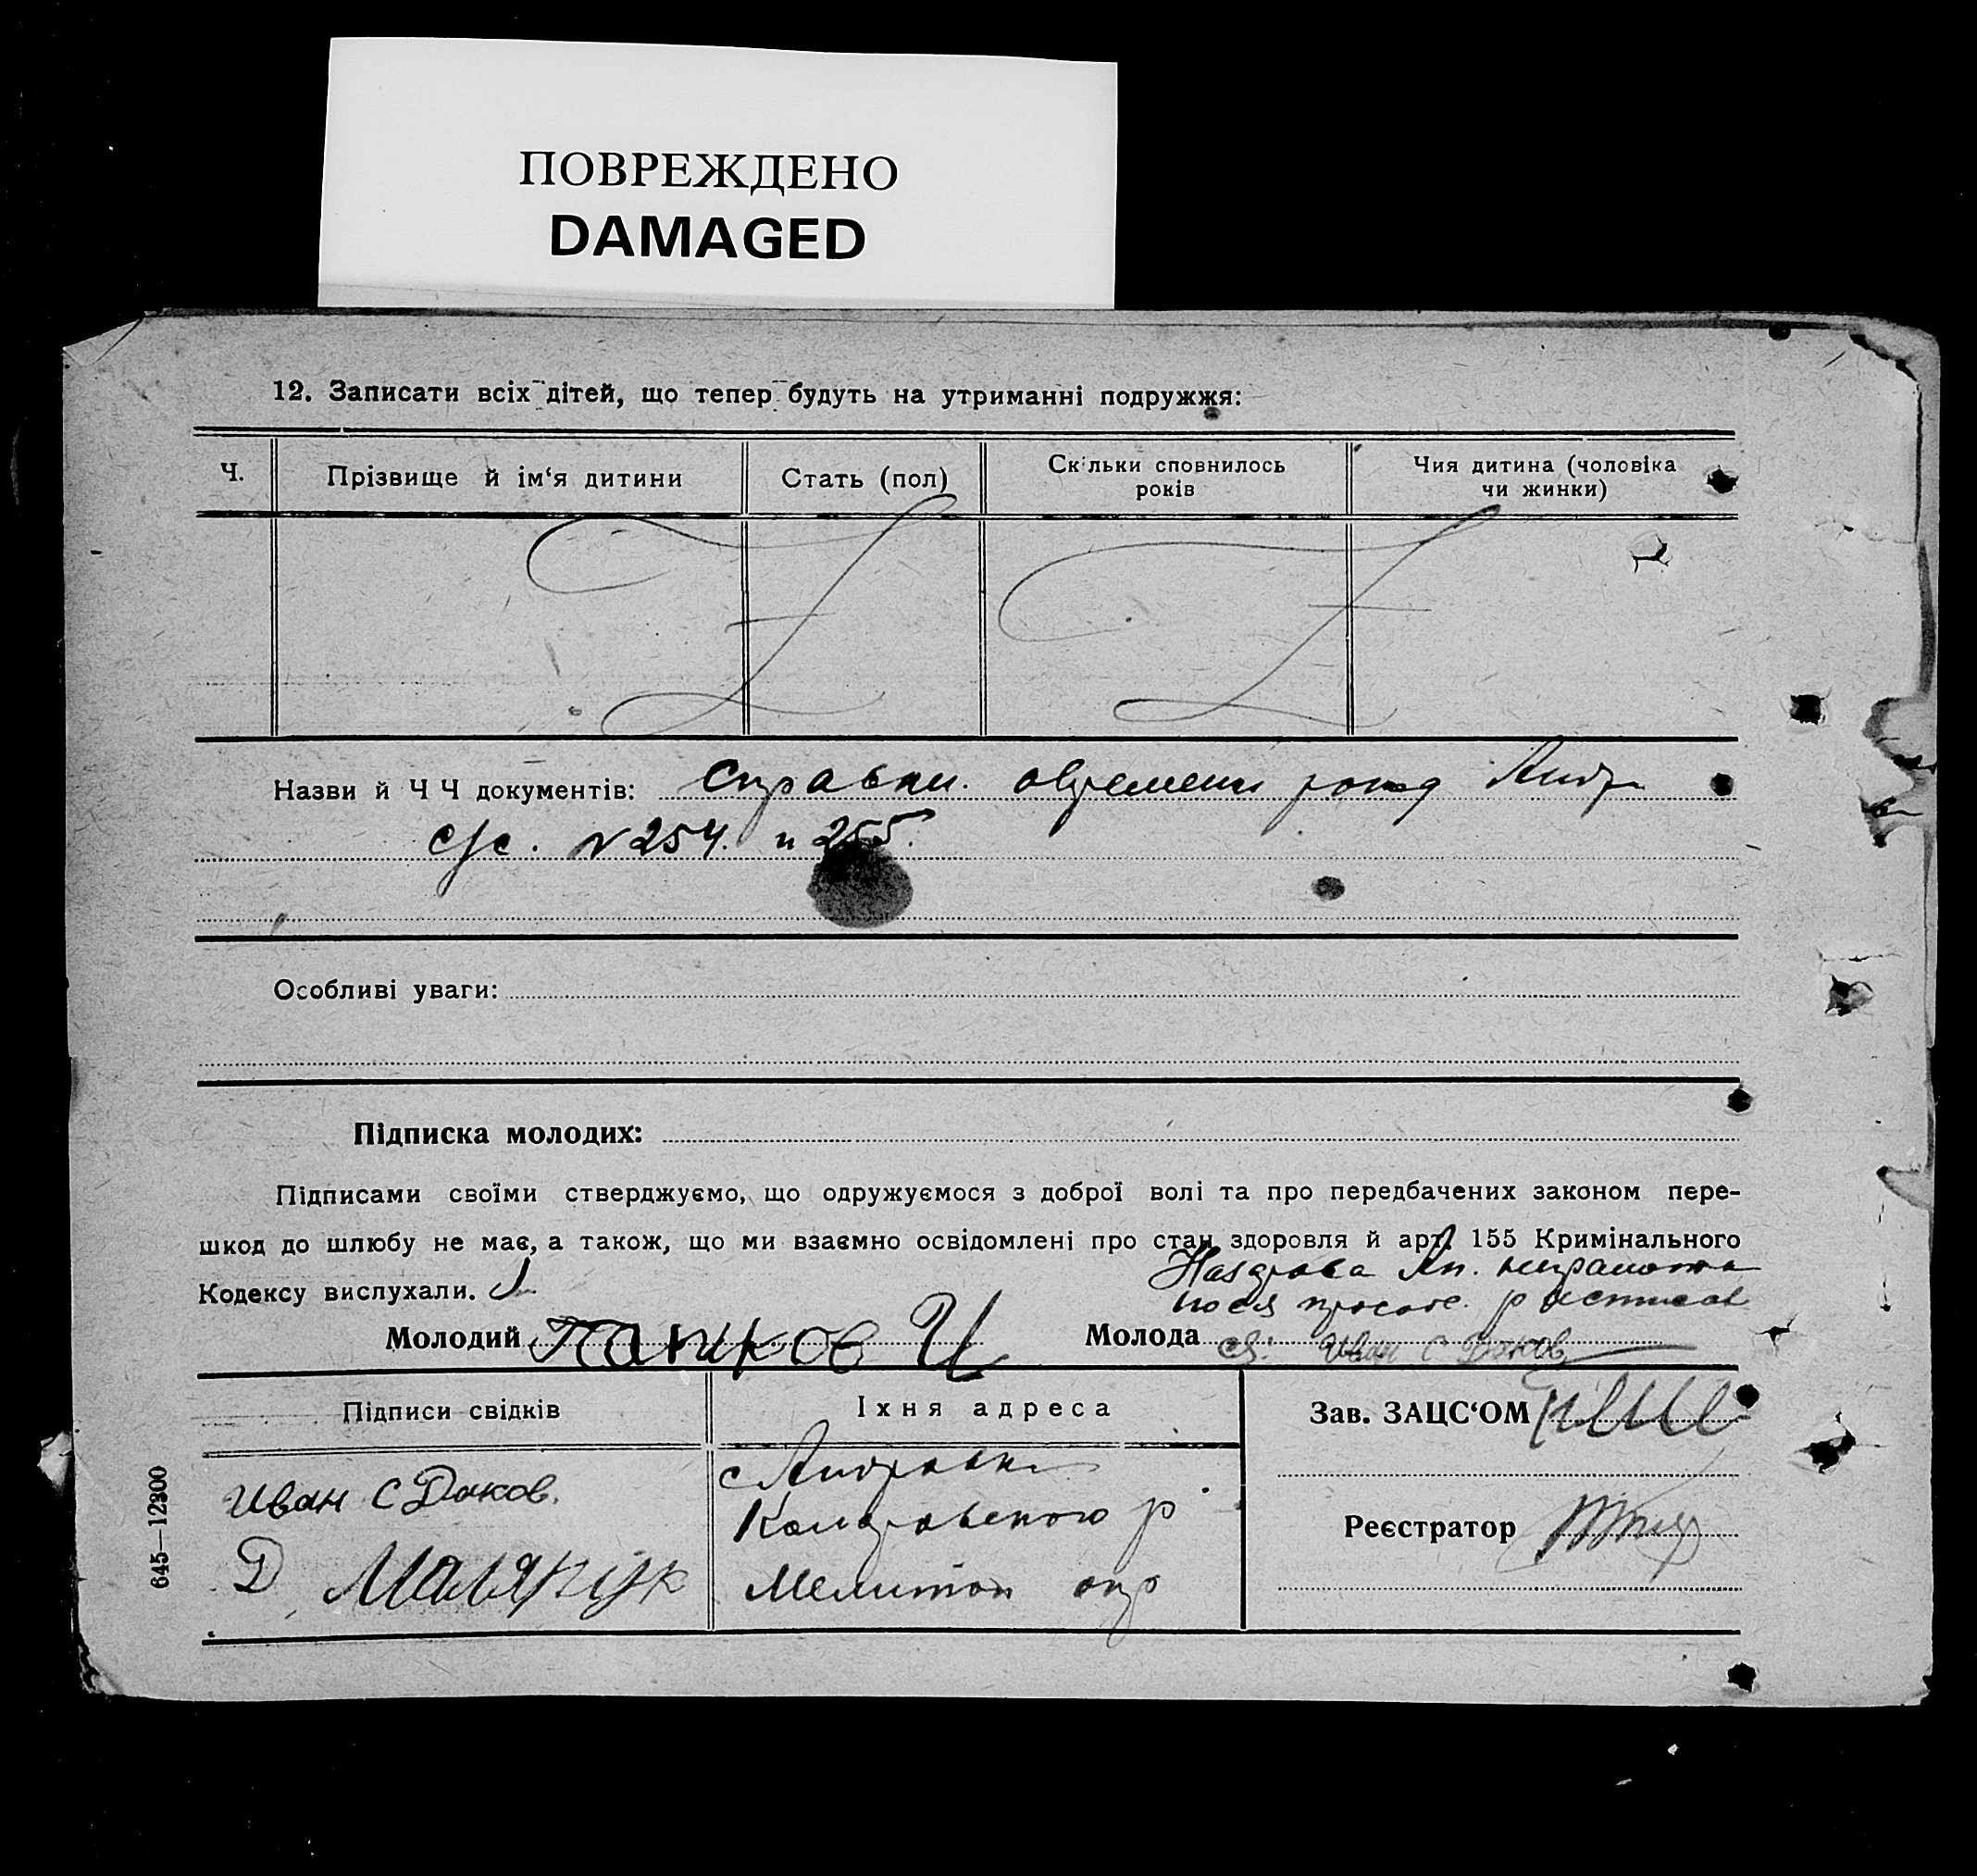 ПОВРЕЖДЕНО
DAMAGED
12. Записати всіх дітей, що тепер будуть на утриманні подружжя:
Ч.
Прізвище й ім‘я дитини
Стать (пол)
Скільки сповнилось
років
Чия дитина (чоловіка
чи жинки)
Назви й Ч Ч документів: Справки. о времени рожд Андр
с/с. N 254. и 255.
Особливі уваги:
Підписка молодих:
Підписами своїми стверджуємо, що одружуємося з доброї волі та про передбачених законом пере-
шкод до шлюбу не має, а також, що ми взаємно освідомлені про стан здоровля й арт. 155 Кримінального
Кодексу вислухали.
неграмотна
Молодий Панков И
Молода Иван С Даков
Підписи свідків
Їхня адреса
Зав. ЗАЦС‘ОМ
Иван С Даков.
с Андровка
Д Малярчук
р
Мелитоп окр
Реєстратор
645—12300